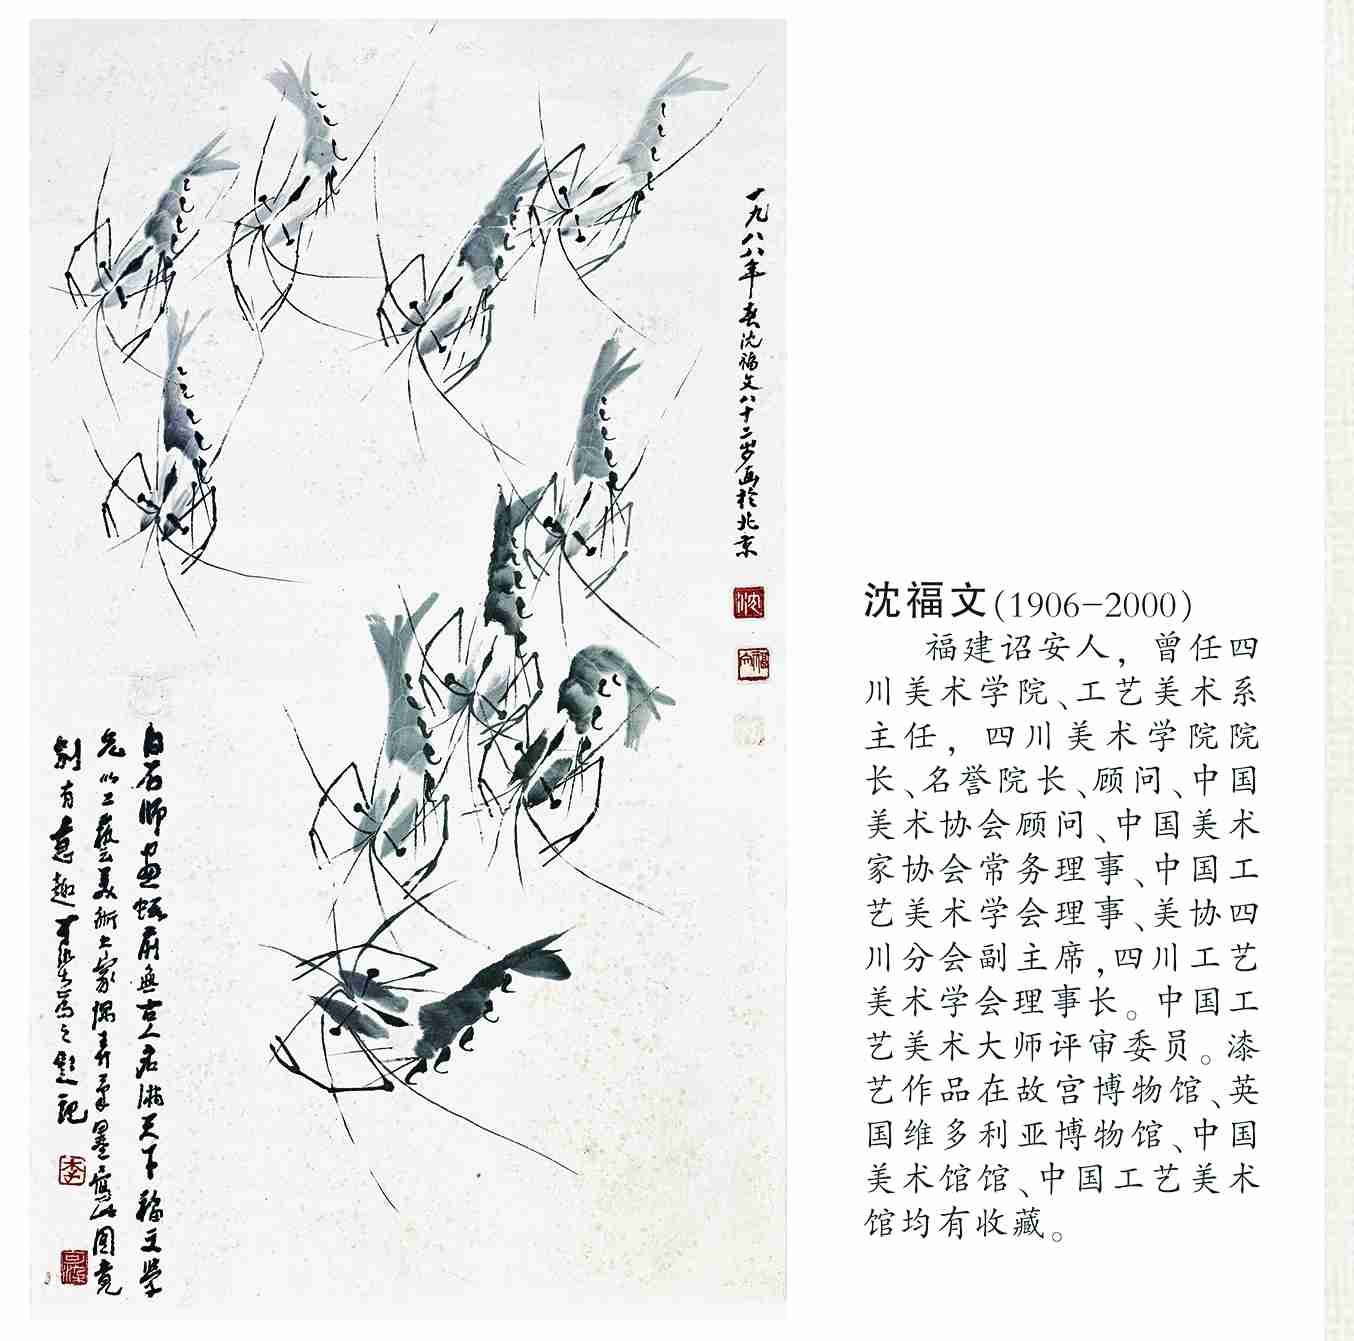 一九八八年春沈福文八十二岁画於北京
沈
福文
白石师画虾前无古人名满天下福文学
兄以工艺美術大家偶弄笔墨写此图竟
别有意趣
题记
李
沈福文(1906-2000)
福建诏安人，曾任四
川美术学院、工艺美术系
主任，四川美术学院院
长、名誉院长、顾问、中国
美术协会顾问、中国美术
家协会常务理事、中国工
艺美术学会理事、美协四
川分会副主席,四川工艺
美术学会理事长。中国工
艺美术大师评审委员。漆
艺作品在故宫博物馆、英
国维多利亚博物馆、中国
美术馆馆、中国工艺美术
馆均有收藏。